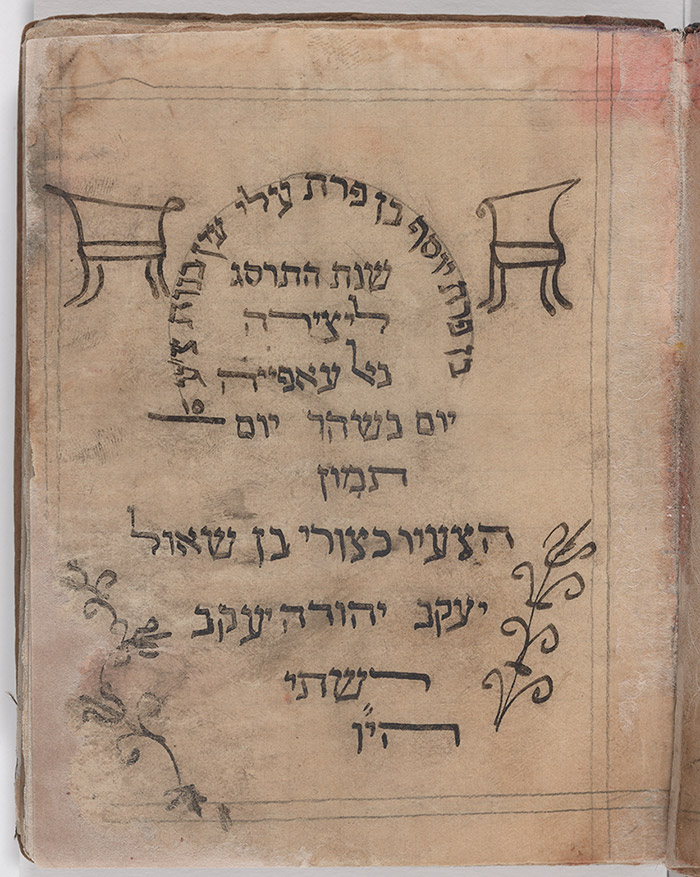 בן פרת יוסף בן פרת עלי עין בנות
שנת התרסג
ליצירה
באל עאפייה
יום בשהר יום
תמוז
הצעיר כצורי בן שאול
יעקב יהודה יעקב
השתי
הי״ו